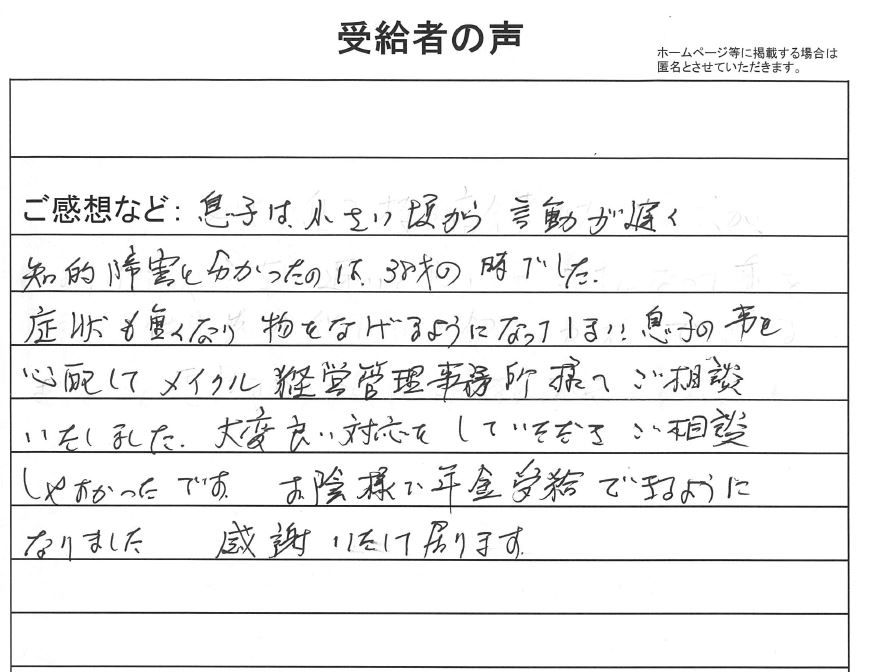 受給者の声
ホームページ等に掲載する場合は
匿名とさせていただきます。
ご感想など：息子は、小さい頃から言動が遅く
知的障害と分かったのは、38才の時でした。
症状も重くなり物をなげるようになってしまい息子の事を
心配してメイクル経営管理事務所様へご相談
いたしました。大変良い対応をしていただきご相談
しやすかったです。お陰様で年金受給できるように
なりました 感謝いたして居ります。